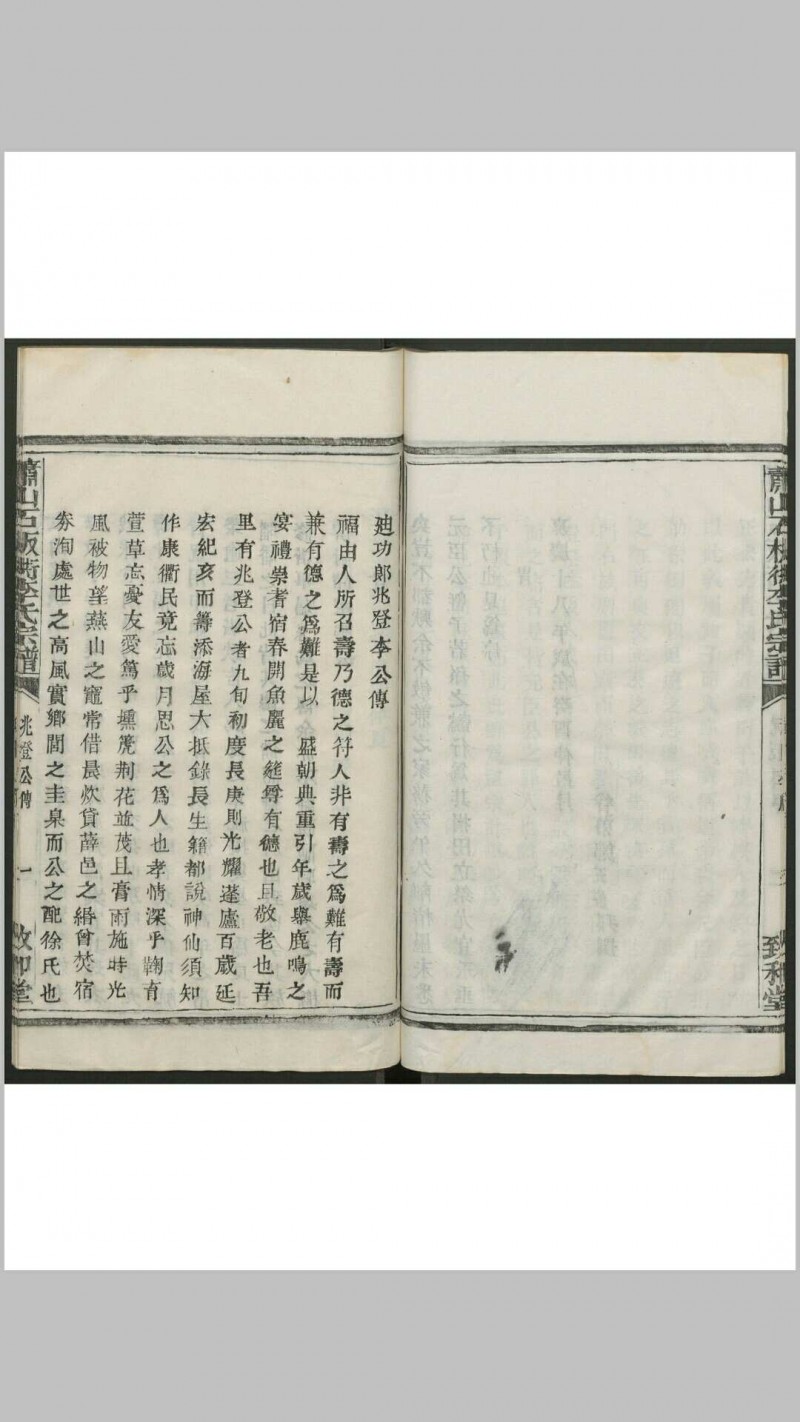 蕭山石板街李氏宗譜
致和堂
廸功郎兆登李公傳
福由人所召壽乃德之符人非有壽之爲難有壽而
兼有德之爲難是以　盛朝典重引年歲舉鹿鳴之
宴禮崇耆宿春開魚麗之筵尊有德也且敬老也吾
里有兆登公者九旬初度長庚則光耀蓬廬百歲延
宏紀亥而籌添海屋大抵錄長生籍都說神仙須知
作康衢民竟忘歲月思公之爲人也孝情深乎鞠育
萱草忘憂友愛篤乎壎箎荆花並茂且膏雨施時光
風被物望燕山之竈常借晨炊貸薛邑之緡曾焚宿
券洵處世之高風實鄉閭之圭臬而公之配徐氏也
蕭山石板街李氏宗譜
兆登公傳
一
致和堂